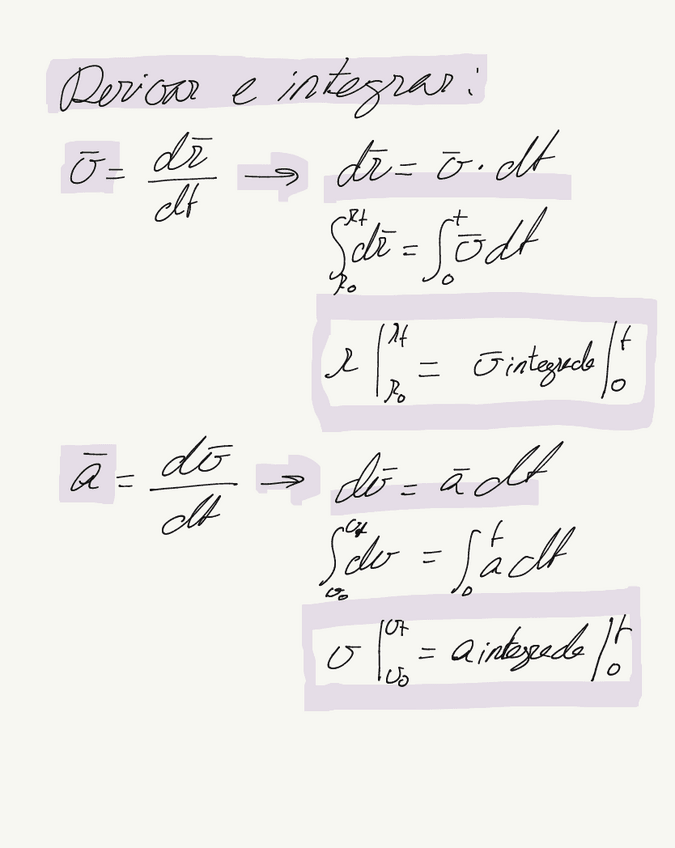 Derivar e integrar:
v̄ = dr̄/dt → dr̄ = v̄ · dt
∫_{r₀}^{rt} dr̄ = ∫_0^t v̄ dt
r |_{r₀}^{rt} = v̄ integrada |_0^t
ā = dv̄/dt → dv̄ = ā dt
∫_{v₀}^{vt} dv = ∫_0^t a dt
v |_{v₀}^{vt} = a integrada |_0^t